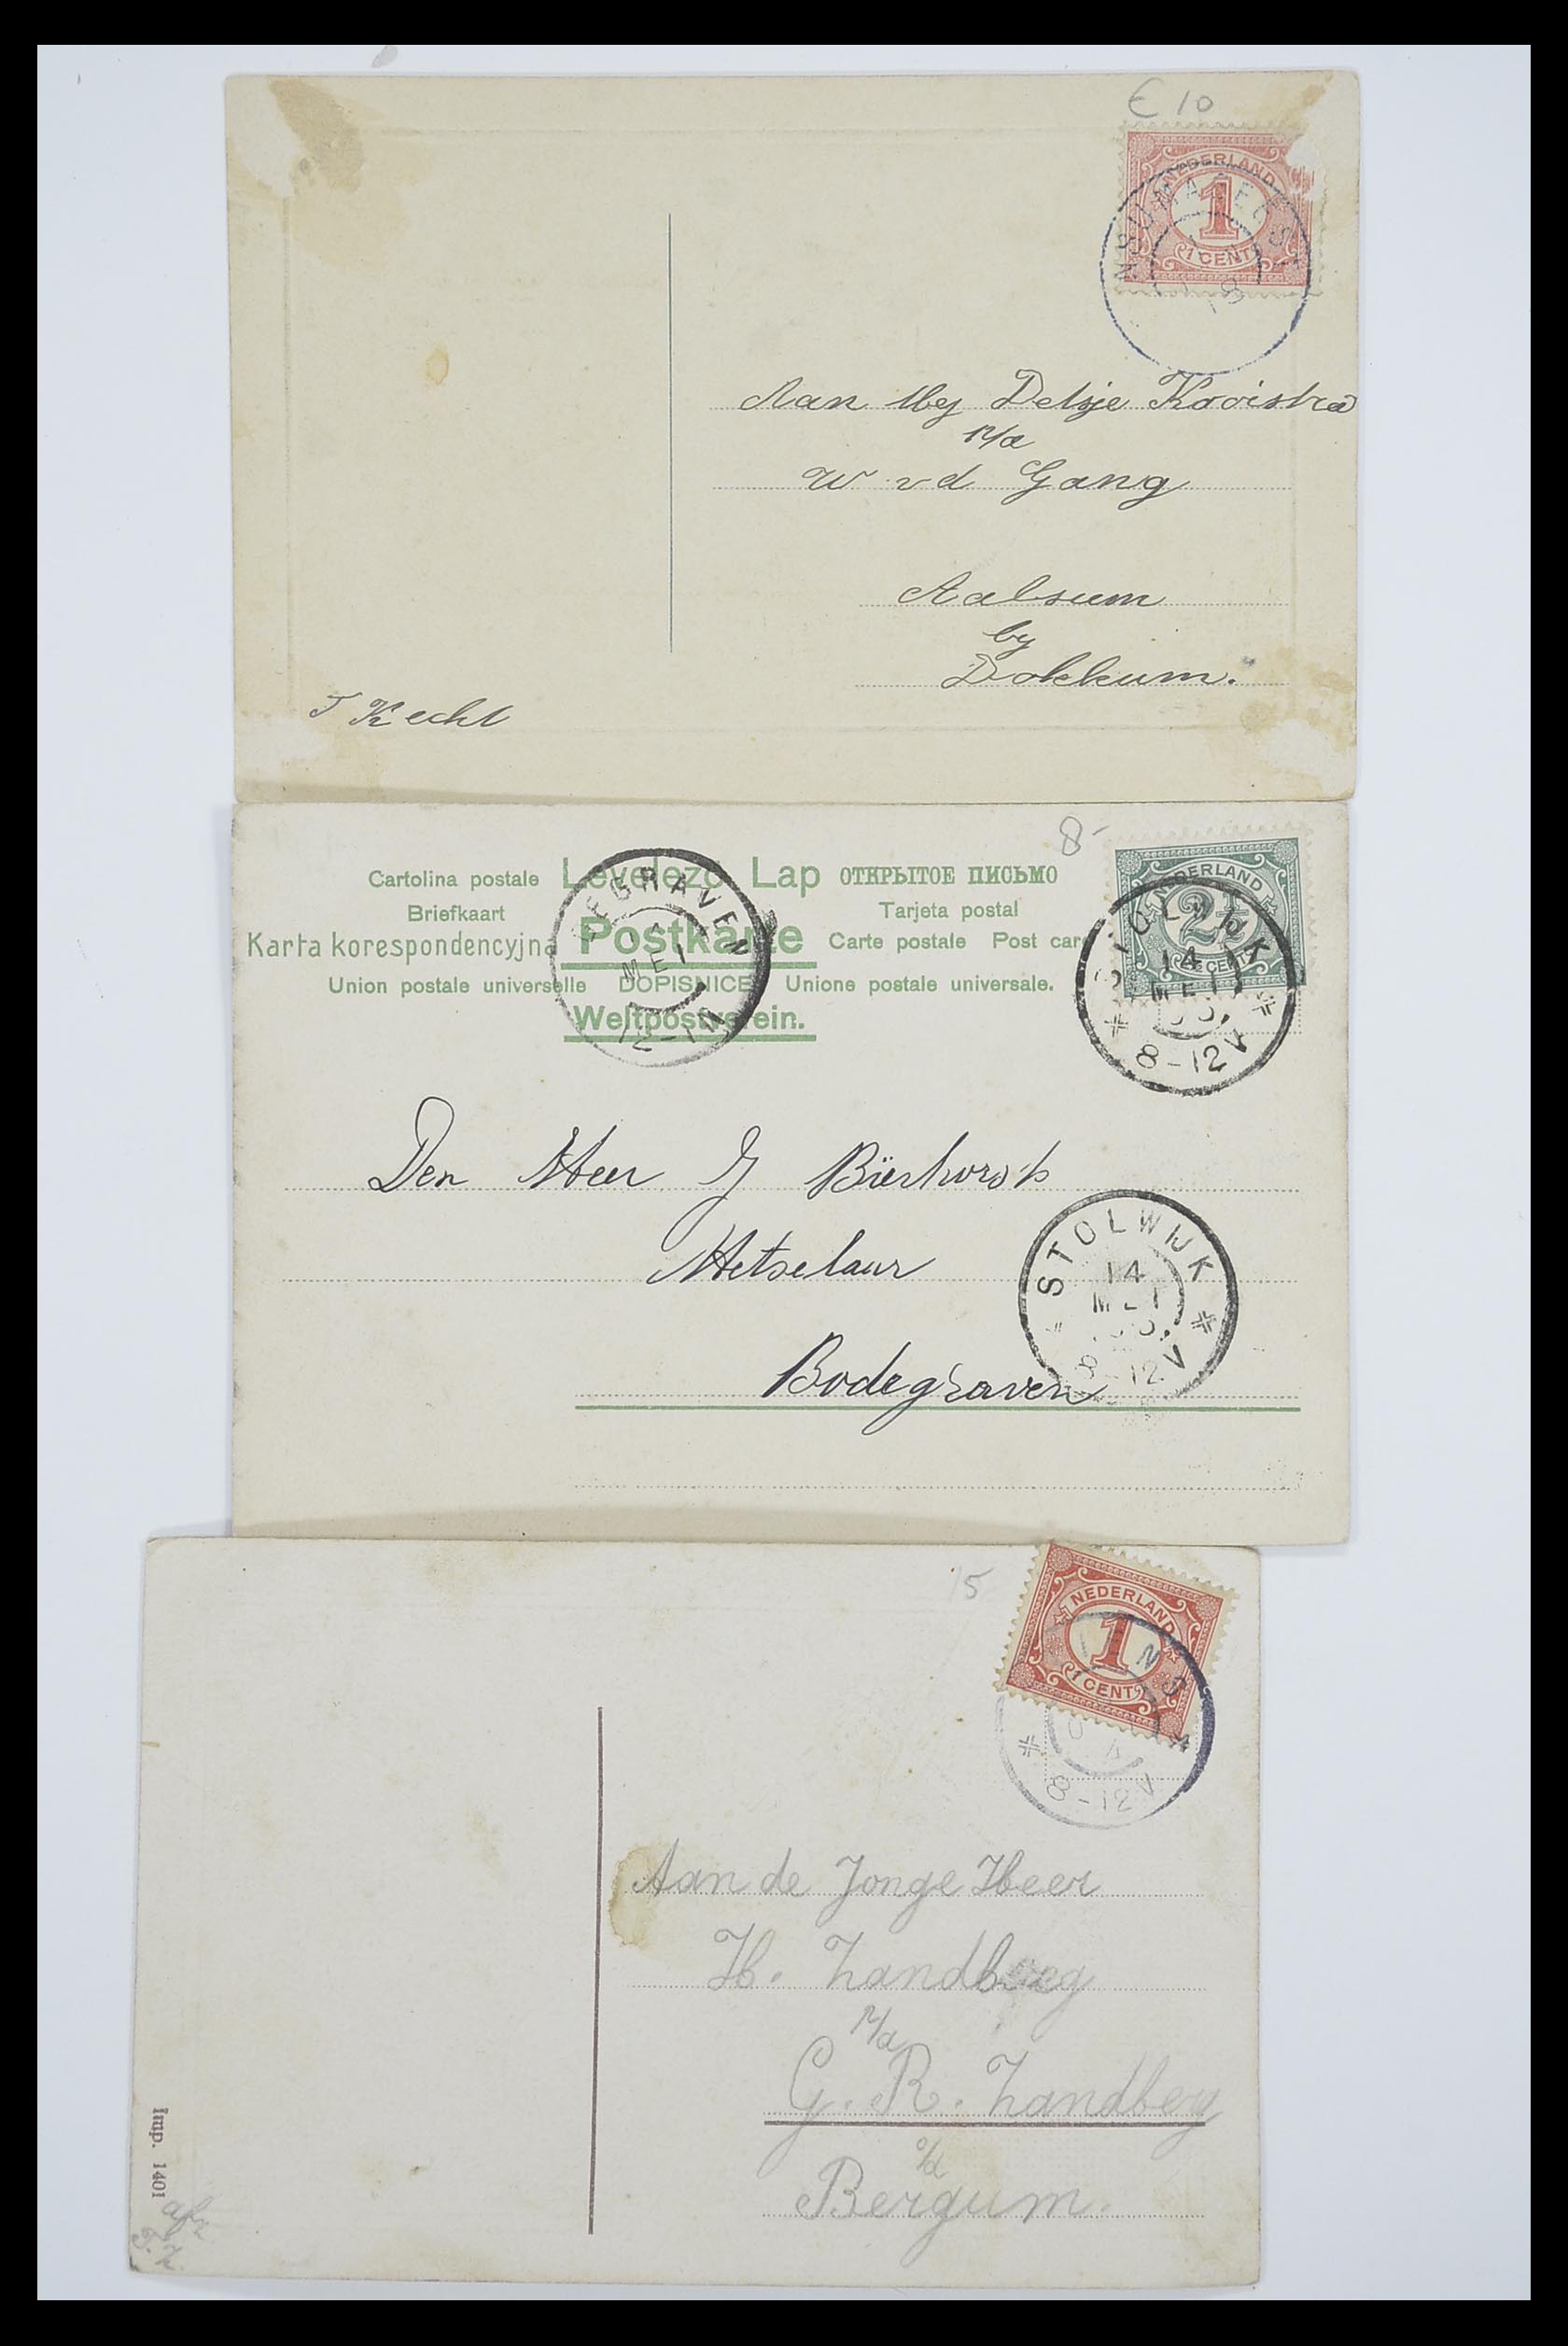 € 10
NEDERLAND
1
1 CENT
Aan Mej Detsje Kooistra
p/a
w vd Gang
Aalsum
by
Dokkum.
T Kecht
8-
Cartolina postale Levelező Lap ОТКРЫТОЕ ПИСЬМО
Briefkaart Postkarte Tarjeta postal
Karta korespondencyjna Carte postale Post car
Union postale universelle DOPISNICE Unione postale universale.
Weltpostverein.
EGRAVEN
MEI
NEDERLAND
2½
CENT
STOLWIJK
14
MEI
8-12V
Den Heer J Bierhorst
Metselaar
STOLWIJK
14
MEI
8-12V
Bodegraven
15
NEDERLAND
1
1 CENT
8-12V
Aan de Jonge Heer
H. Zandberg
p/a
G. R. Zandberg
o/d
Bergum.
Imp. 1401
afz
T. Z.